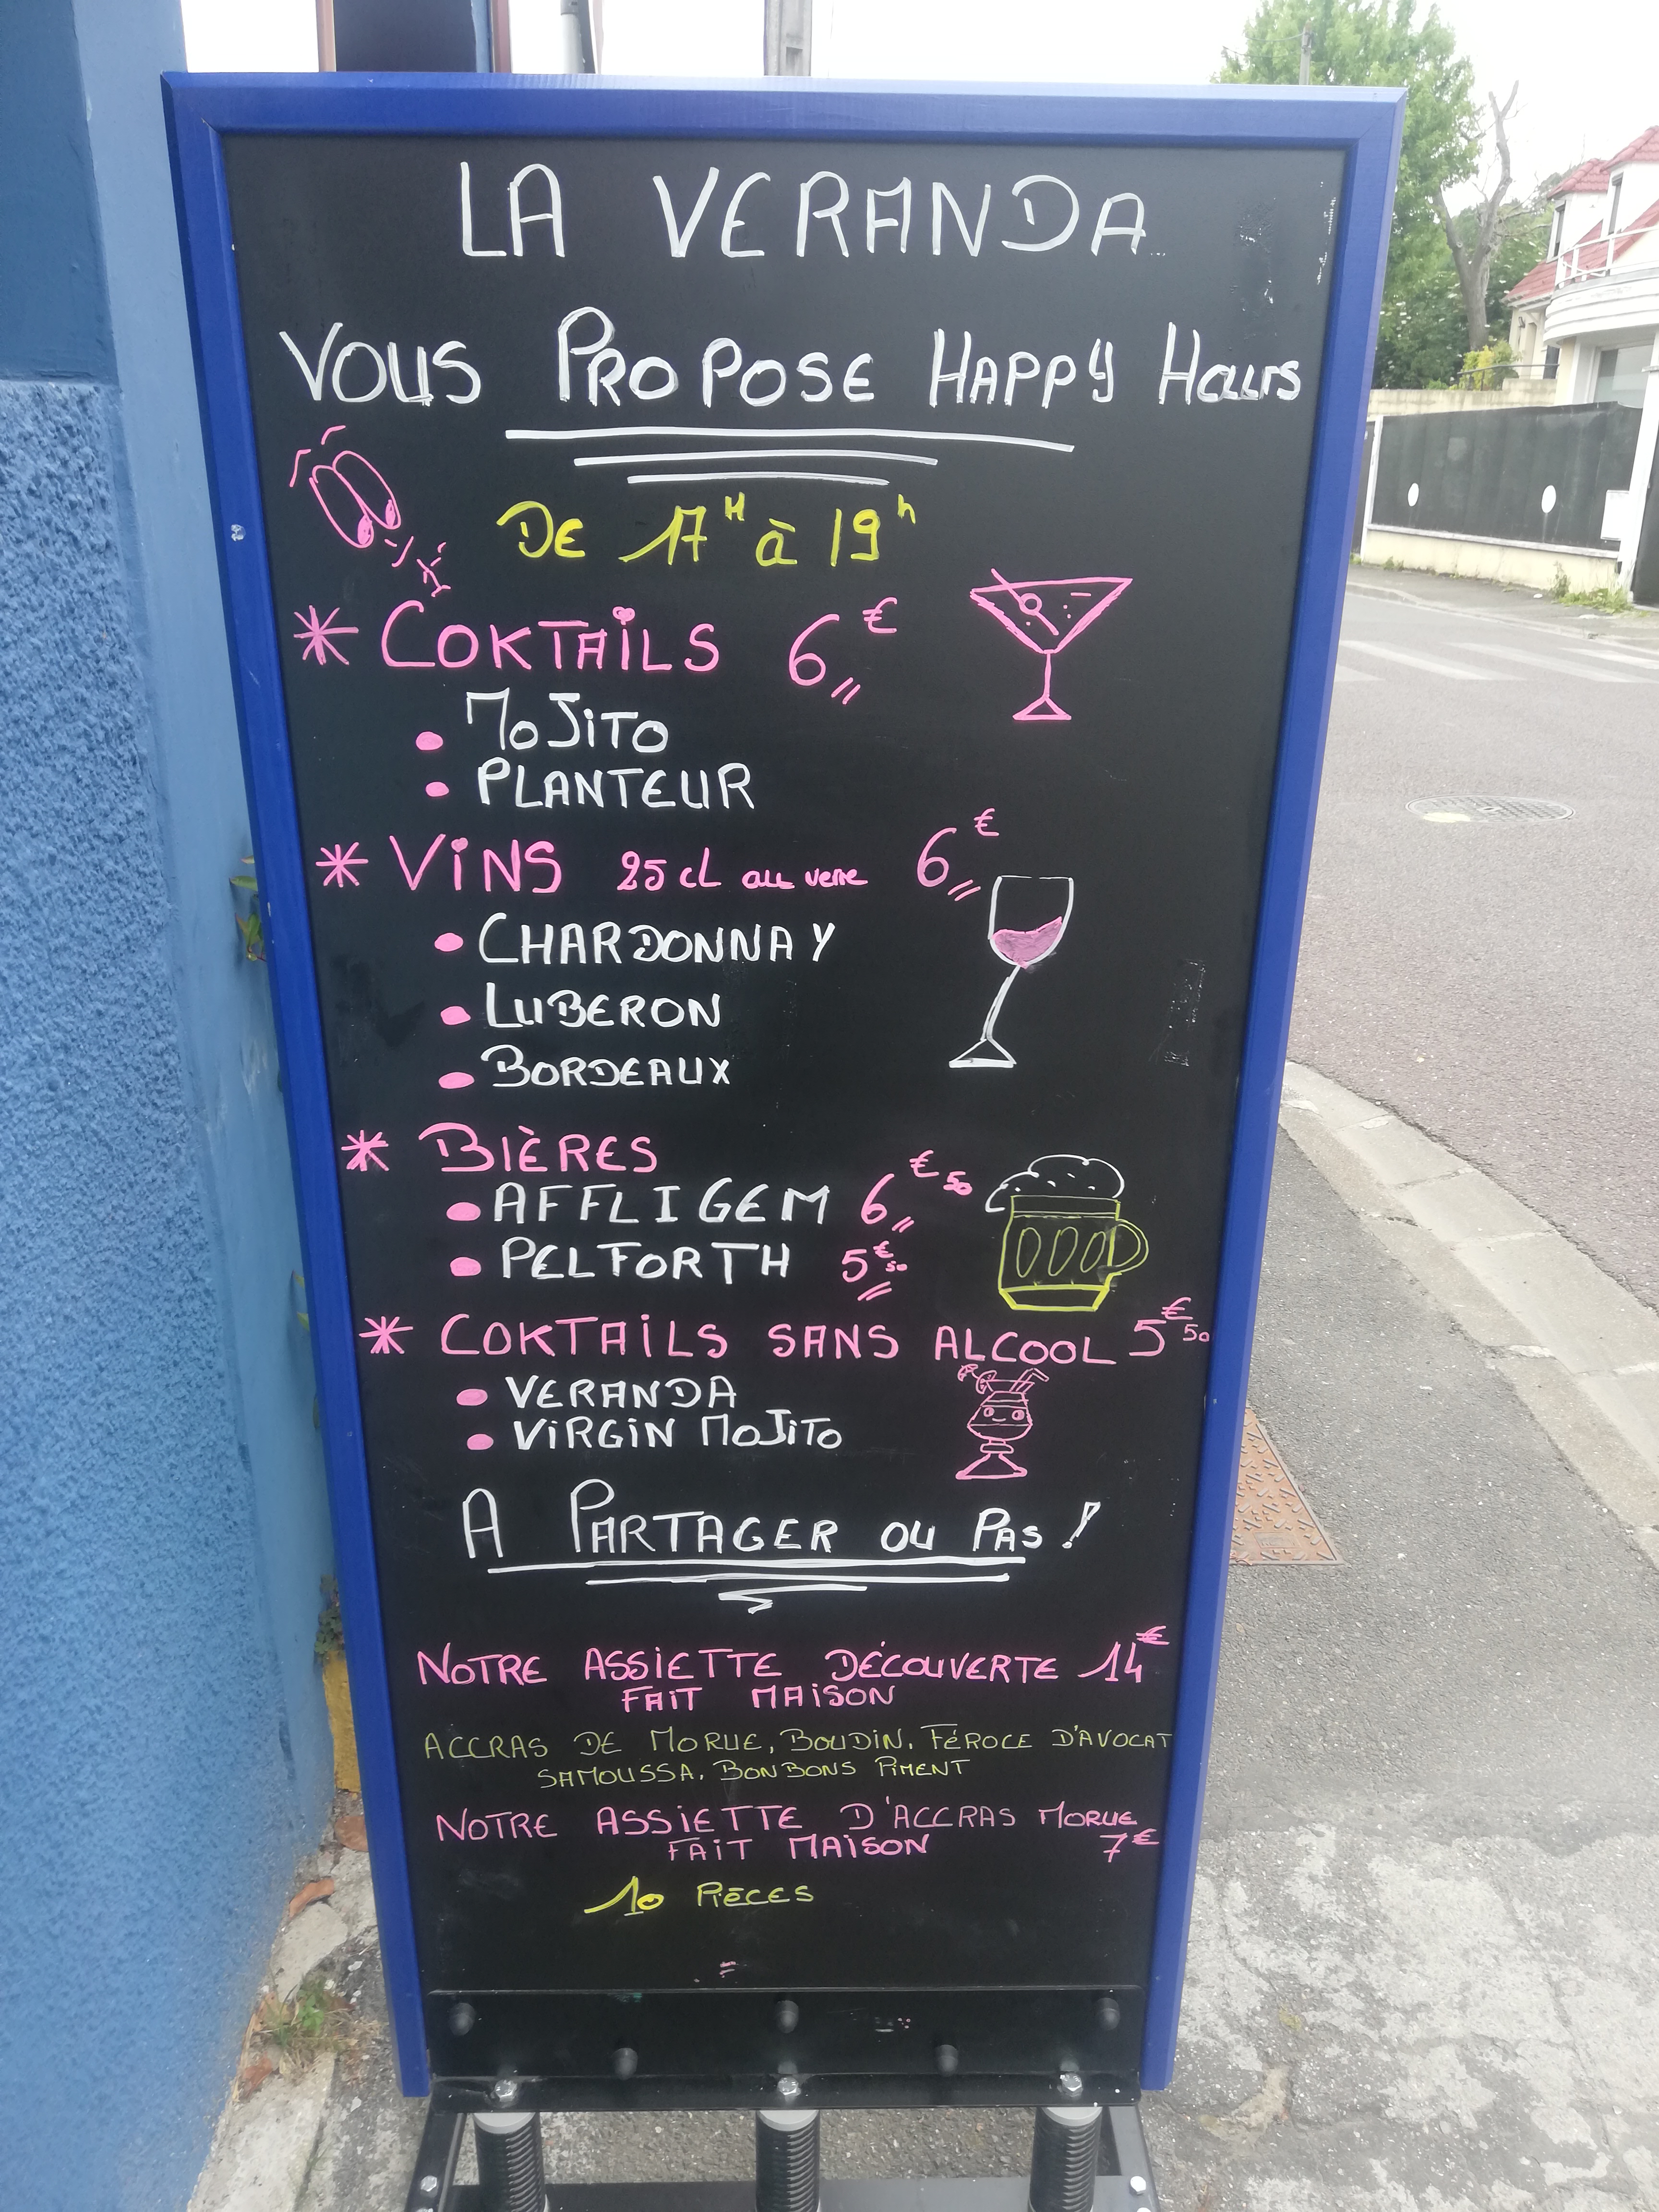 LA VERANDA
VOUS PROPOSE HAPPY HOURS
DE 17H à 19h
* COKTAILS 6€
• MOJITO
• PLANTEUR
* VINS 25 cL au verre 6€
• CHARDONNAY
• LUBERON
• BORDEAUX
* BIÈRES
• AFFLIGEM 6€50
• PELFORTH 5€50
* COKTAILS SANS ALCOOL 5€50
• VERANDA
• VIRGIN MOJITO
A PARTAGER OU PAS !
NOTRE ASSIETTE DÉCOUVERTE 14€
FAIT MAISON
ACCRAS DE MORUE, BOUDIN, FÉROCE D'AVOCAT
SAMOUSSA, BONBONS PIMENT
NOTRE ASSIETTE D'ACCRAS MORUE
FAIT MAISON 7€
10 PIÈCES